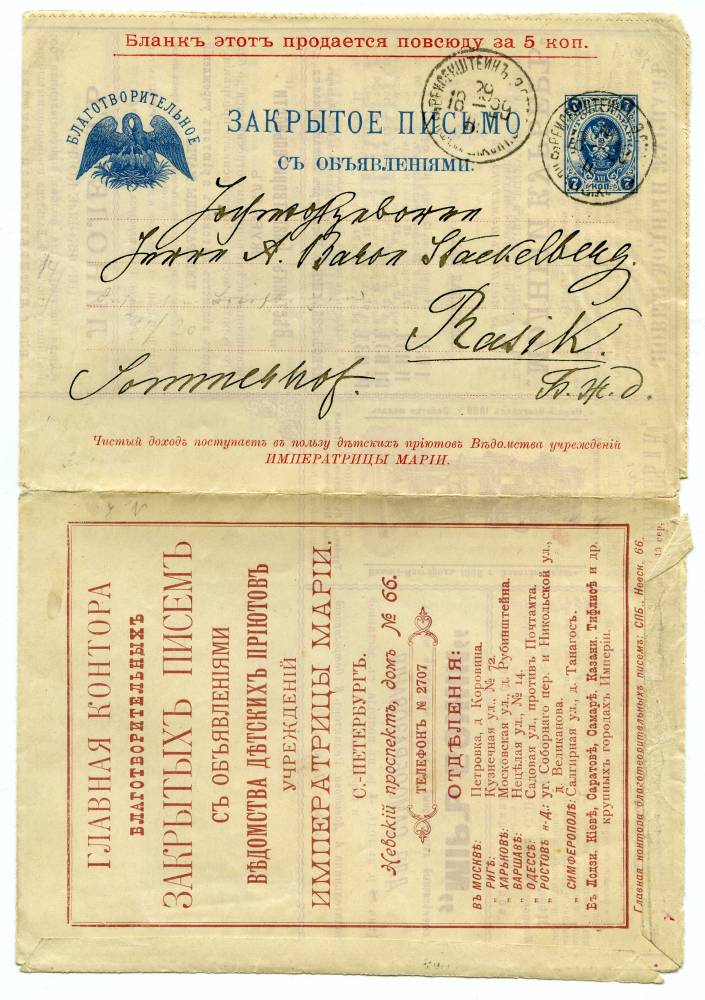 Бланкъ этотъ продается повсюду за 5 коп.
БЛАГОТВОРИТЕЛЬНОЕ
ЗАКРЫТОЕ ПИСЬМО
СЪ ОБЪЯВЛЕНІЯМИ.
7 7
7 КОП. 7
29
Hochwohlgeboren
Herrn A. Baron Stackelberg.
Rasik.
Sommerhof. Б. Ж. д.
Чистый доходъ поступаетъ въ пользу дѣтскихъ пріютовъ Вѣдомства учрежденій
ИМПЕРАТРИЦЫ МАРІИ.
ГЛАВНАЯ КОНТОРА
БЛАГОТВОРИТЕЛЬНЫХЪ
ЗАКРЫТЫХЪ ПИСЕМЪ
СЪ ОБЪЯВЛЕНІЯМИ
ВѢДОМСТВА ДѢТСКИХЪ ПРІЮТОВЪ
УЧРЕЖДЕНІЙ
ИМПЕРАТРИЦЫ МАРІИ.
С.-ПЕТЕРБУРГЪ.
Невскій проспектъ, домъ № 66.
ТЕЛЕФОНЪ № 2707
ОТДѢЛЕНІЯ:
ВЪ МОСКВѢ: Петровка, д Коровина.
„ РИГѢ: Кузнечная ул., № 72.
„ ХАРЬКОВѢ: Московская ул., д. Рубинштейна.
„ ВАРШАВѢ: Нецѣлая ул., № 14.
„ ОДЕССѢ: Садовая ул., противъ Почтамта.
„ РОСТОВѢ н-Д.: уг. Соборнаго пер. и Никольской ул.,
д. Великанова.
„ СИМФЕРОПОЛѢ: Салгирная ул., д. Танагосъ.
Въ Лодзи, Кіевѣ, Саратовѣ, Самарѣ, Казани, Тифлисѣ и др.
крупныхъ городахъ Имперіи.
Главная контора благотворительныхъ писемъ: СПБ., Невск. 66.
13 сер.